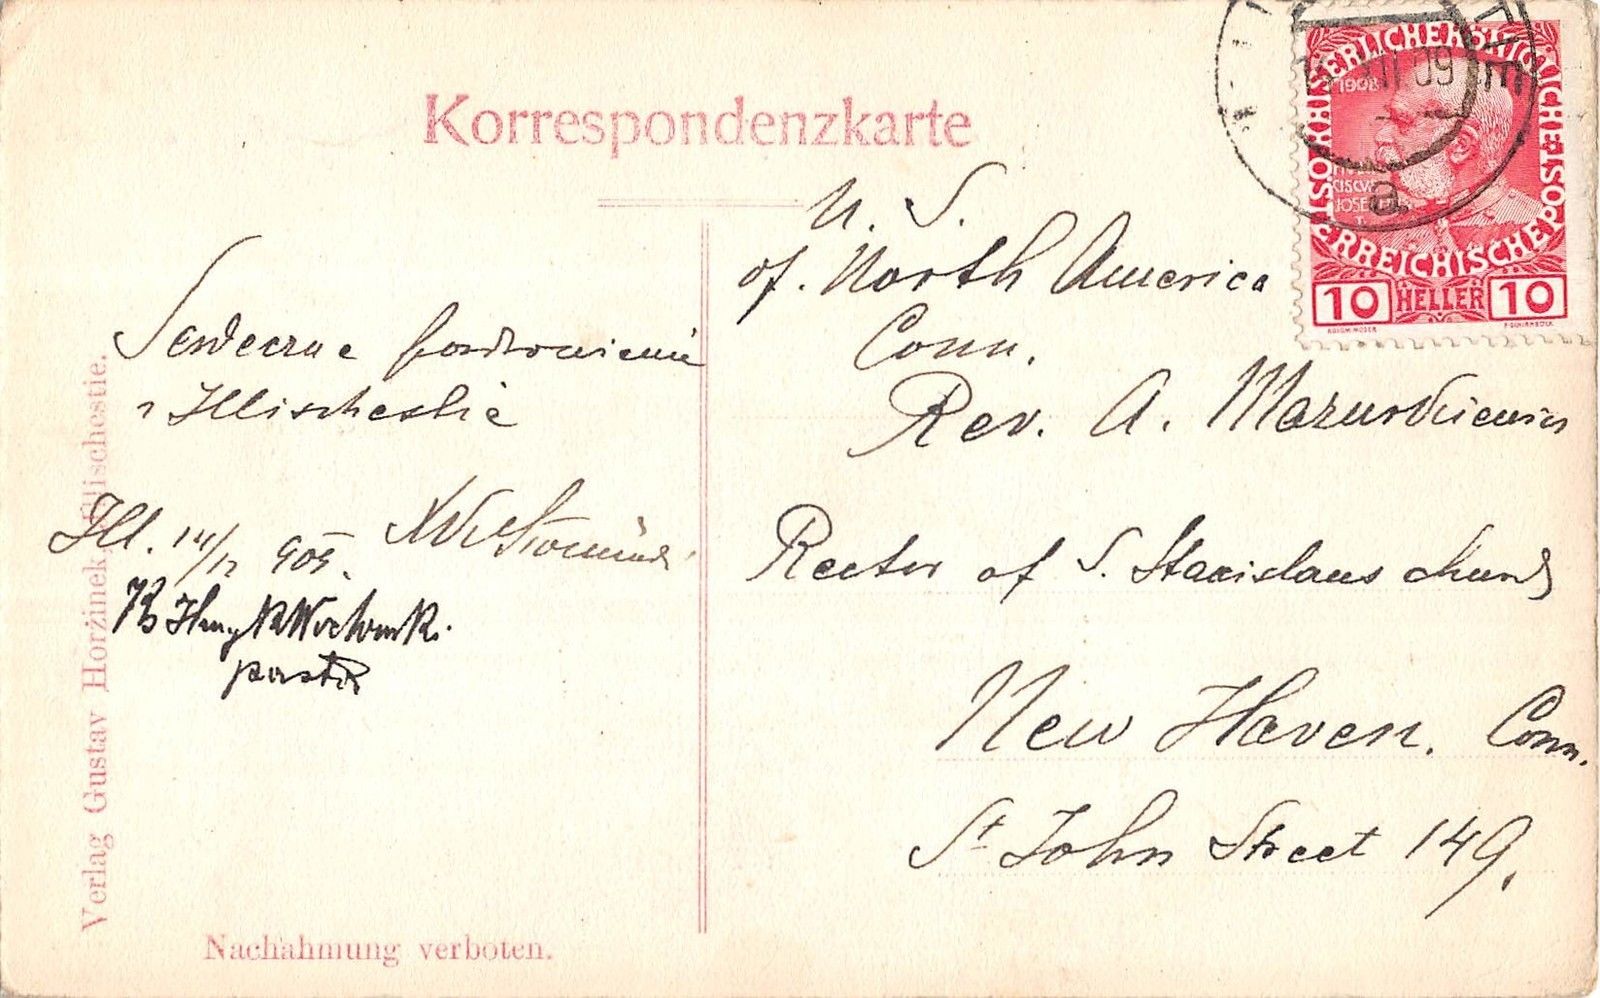 Korrespondenzkarte
KAISERLICHE KÖNIGLICHE ÖSTERREICHISCHE POST
1908
10 HELLER 10
09
a
U. S.
of. North America
Conn.
Rev. A. Mazurkiewicz
Rector of S. Stanislaus church
New Haven. Conn.
St John Street 149.
Serdeczne pozdrowienie
z Illischestie
Ill. 14/12 909.
Verlag Gustav Horžinek, Illischestie.
Nachahmung verboten.